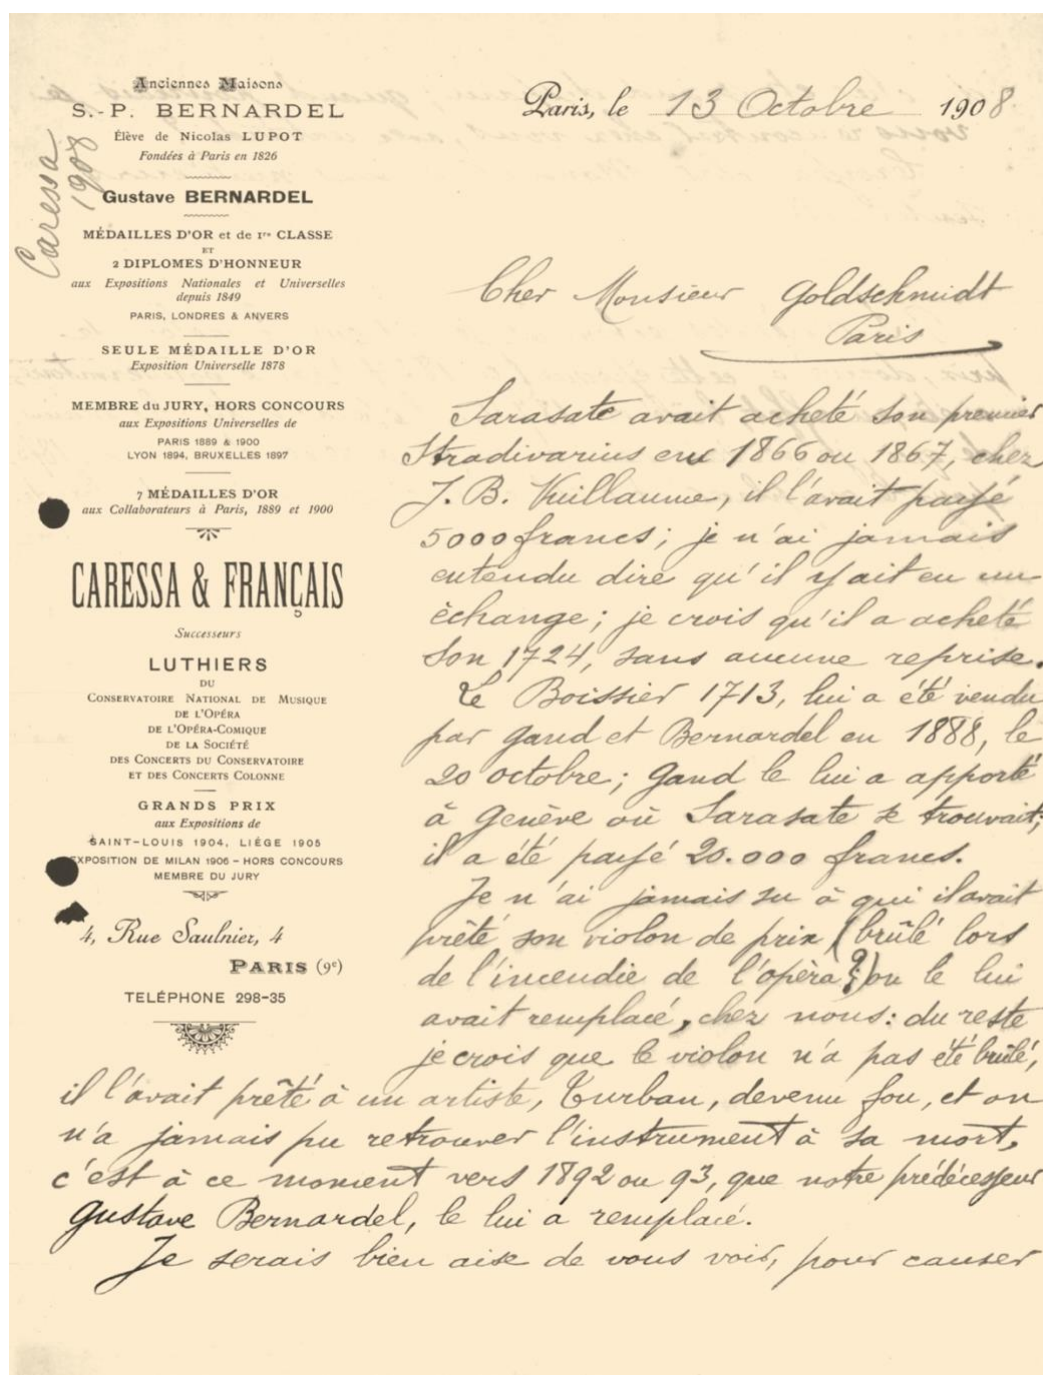 Anciennes Maisons
S.-P. BERNARDEL
Élève de Nicolas LUPOT
Fondées à Paris en 1826
Gustave BERNARDEL
MÉDAILLES D'OR et de 1re CLASSE
ET
2 DIPLOMES D'HONNEUR
aux Expositions Nationales et Universelles
depuis 1849
PARIS, LONDRES & ANVERS
SEULE MÉDAILLE D'OR
Exposition Universelle 1878
MEMBRE du JURY, HORS CONCOURS
aux Expositions Universelles de
PARIS 1889 & 1900
LYON 1894, BRUXELLES 1897
7 MÉDAILLES D'OR
aux Collaborateurs à Paris, 1889 et 1900
CARESSA & FRANÇAIS
Successeurs
LUTHIERS
DU
CONSERVATOIRE NATIONAL DE MUSIQUE
DE L'OPÉRA
DE L'OPÉRA-COMIQUE
DE LA SOCIÉTÉ
DES CONCERTS DU CONSERVATOIRE
ET DES CONCERTS COLONNE
GRANDS PRIX
aux Expositions de
SAINT-LOUIS 1904, LIÉGE 1905
EXPOSITION DE MILAN 1906 - HORS CONCOURS
MEMBRE DU JURY
4, Rue Saulnier, 4
PARIS (9e)
TELÉPHONE 298-35
Caressa
1908
Paris, le 13 Octobre 1908
Cher Monsieur Goldschmidt
Paris
Sarasate avait acheté son premier
Stradivarius en 1866 ou 1867, chez
J. B. Vuillaume, il l'avait payé
5000 francs; je n'ai jamais
entendu dire qu'il y ait eu un
èchange; je crois qu'il a acheté
son 1724, sans aucune reprise.
Le Boissier 1713, lui a été vendu
par Gand et Bernardel en 1888, le
20 octobre; Gand le lui a apporté
à Genève où Sarasate se trouvait;
il a été payé 20.000 francs.
Je n'ai jamais su à qui il avait
prêté son violon de prix (brûlé lors
de l'incendie de l'opèra?) on le lui
avait remplacé, chez nous: du reste
je crois que le violon n'a pas été brûlé,
il l'avait prêté à un artiste, Turban, devenu fou, et on
n'a jamais pu retrouver l'instrument à sa mort,
c'est à ce moment vers 1892 ou 93, que notre prédécesseur
Gustave Bernardel, le lui a remplacé.
Je serais bien aise de vous voir, pour causer